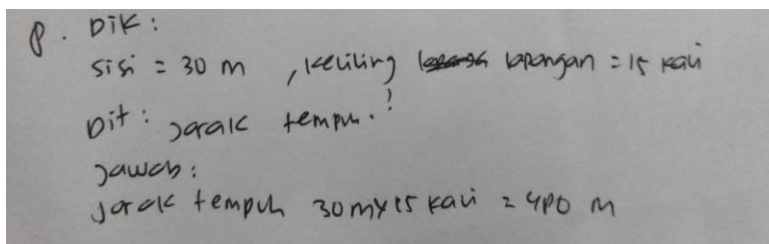 8. Dik:
sisi = 30 m, keliling lapangan = 15 kali
Dit: jarak tempuh.?
Jawab:
Jarak tempuh 30 m x 15 kali = 480 m